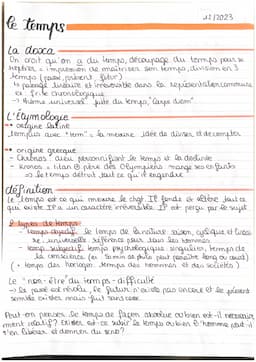 le temps
11/2023
La doxa
On croit qu'on a du temps, découpage du temps pour se
repérer = impression de maîtriser son temps, division en 3
temps (passé, présent, futur)
↳ passage linéaire et irréversible dans la représentation commune
ex : frise chronologique
→ thème universel : fuite du temps, "carpe diem"
L'étymologie
• origine latine
tempus avec "tem" = la mesure, idée de diviser et décompter
• origine grecque
- Chronos : dieu personnifiant le temps et la destinée
- Kronos = titan père des Olympiens mange ses enfants
↳ le temps détruit tout ce qu'il engendre
définition
Le temps est ce qui mesure le chgt. Il fonde et altère tout ce
qui existe. Il a un caractère irréversible. Il est perçu par le sujet
2 types de temps :
- temps objectif : le temps de la nature, saison, cyclique et linéaire,
universelle, référence pour tous les hommes
- temps subjectif : temps psychologique, singulier, temps de
la conscience (ex : 30 min de pub peut paraître long ou court)
(+ temps des horloges, temps des hommes et des sociétés)
Le "non-être" du temps - difficulté
↳ le passé est révolu, le futur n'existe pas encore et le présent
semble exister mais fuit sans cesse
Peut-on penser le temps de façon absolue ou bien est-il nécessairement
relatif ? Exister est-ce subir le temps ou bien l'homme peut-il
s'en libérer et donner du sens ?